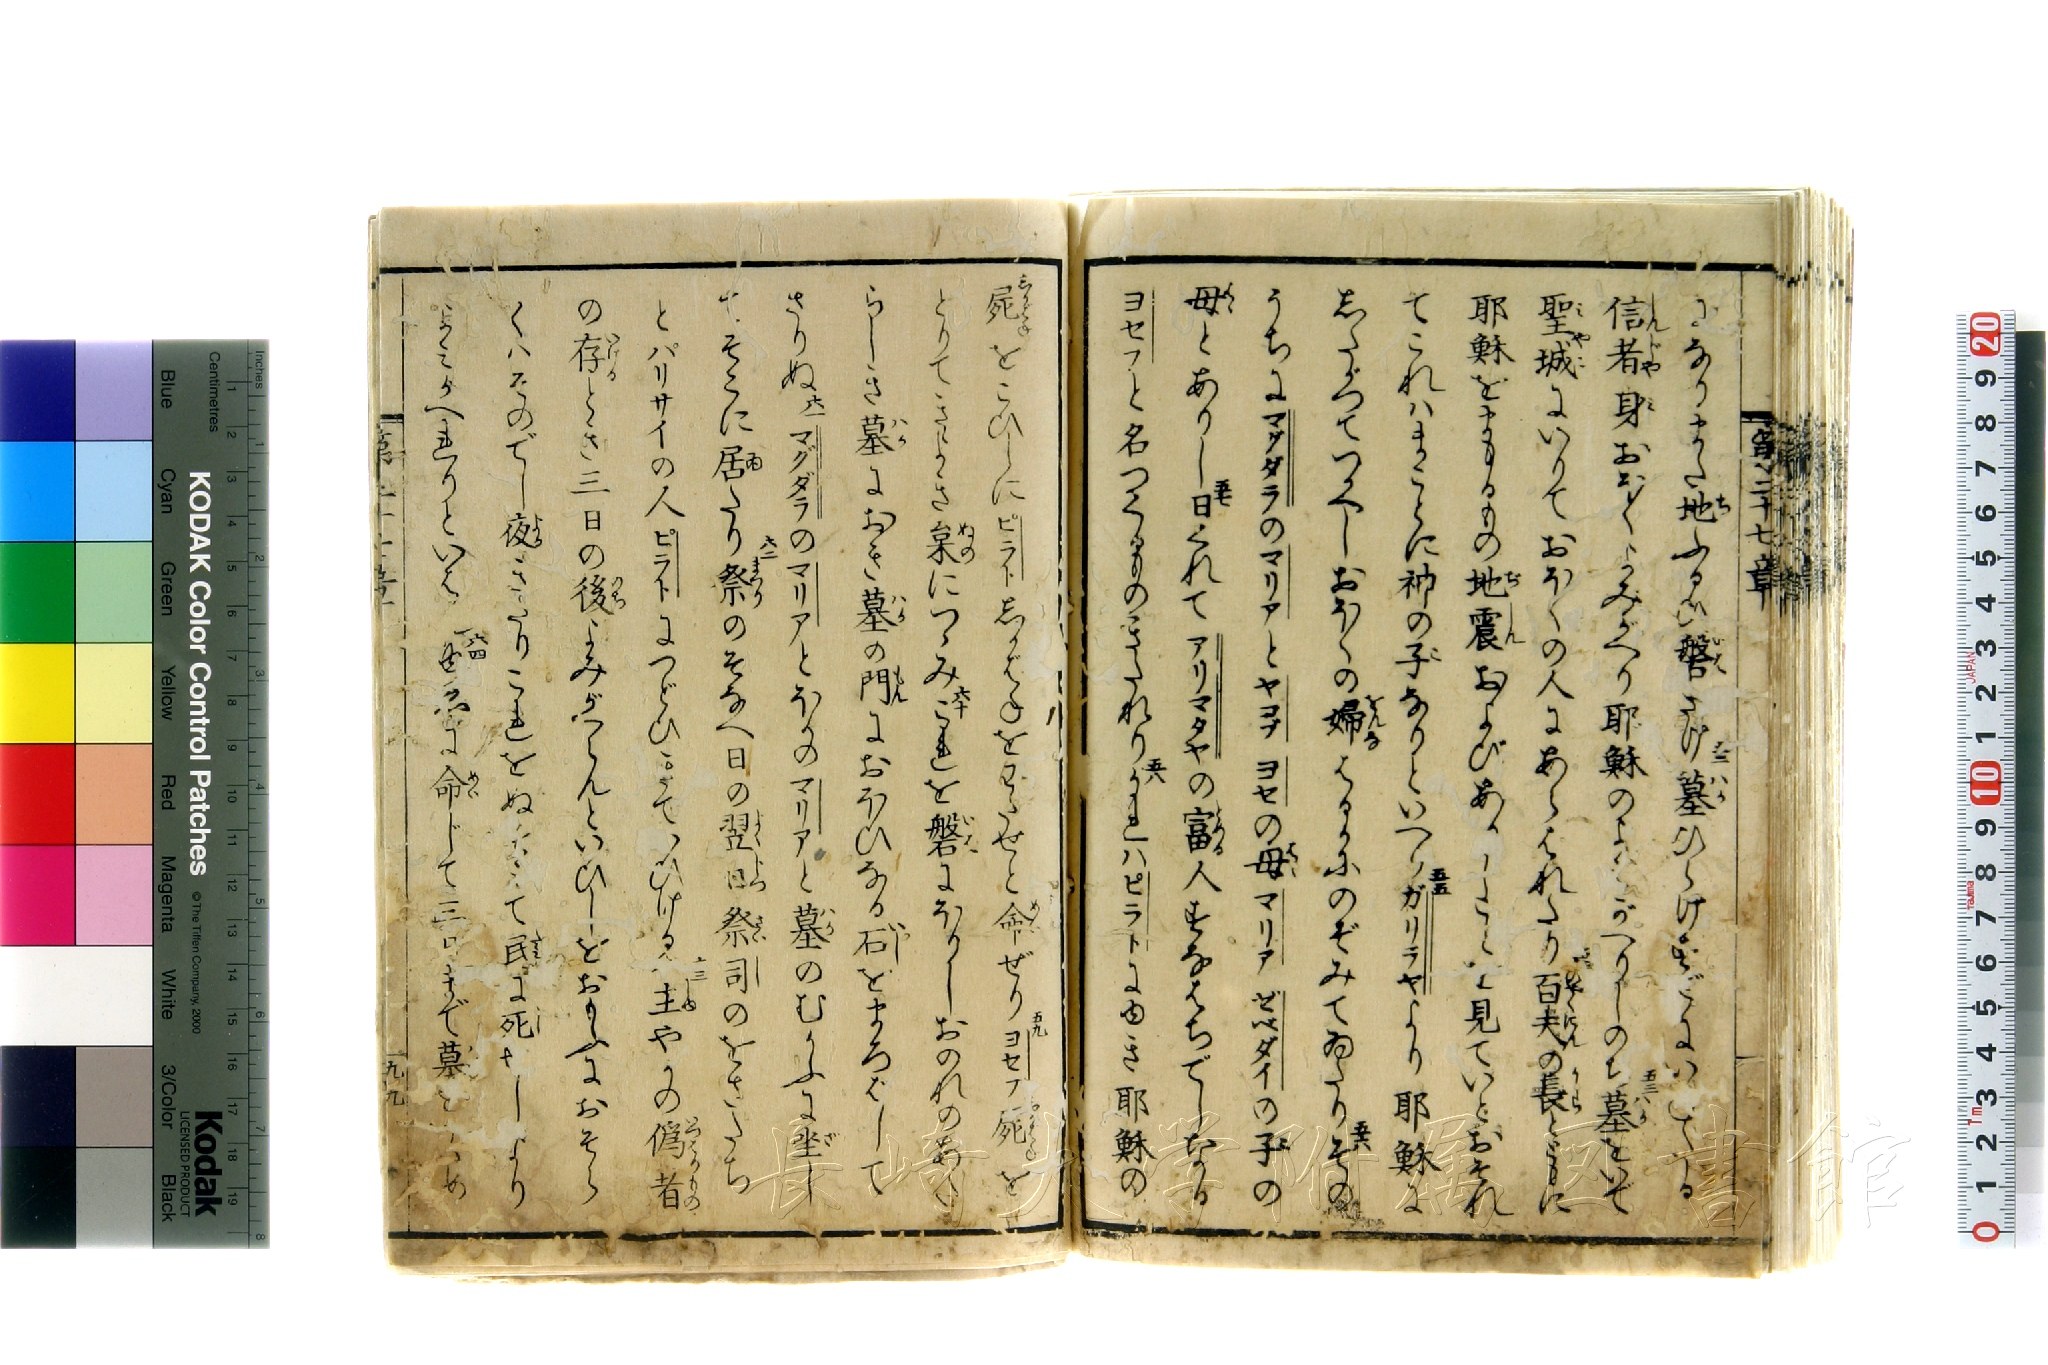 になりまた地ふるひ磐さけ墓ひらけすでにいねたる
信者身おほくよみがへり耶穌のよみがへりしのち墓をいで
聖城にいりておほくの人にあらはれたり百夫の長ともに
耶穌をまもるもの地震およびありしことを見ていとおそれ
てこれハまことに神の子なりといへりガリラヤより耶穌に
したがつてつかへしおほくの婦はるかにのぞみてゐたりその
うちにマグダラのマリアとヤコブ ヨセの母マリア ゼベダイの子の
母とありし日くれてアリマタヤの富人すなはちでしなる
ヨセフと名つくるものきたれりかれハピラトにゆき耶穌の
第二十七章
屍をこひしにピラトしかばねをわたせと命ぜりヨセフ死を
とりてきよき枲につゝみこれを磐にほりしおのれのあた
らしき墓におき墓の門におほひなる石をまろばして
さりぬマグダラのマリアとほかのマリアと墓のむかふに坐し
そこに居たり祭のそなへ日の翌日祭司のをさたち
とパリサイの人ピラトにつどひきていひける主やかの僞者
の存ときき三日の後よみがへらんといひしをおもふにおそら
くハそのでし夜きたりこれをぬすみて民に死せしより
よみがへれりといはん 是故に命じて三日まで墓をかため
九九
KODAK Color Control Patches
© The Tiffen Company, 2000
Kodak
LICENSED PRODUCT
Inches
Centimetres
Blue
Cyan
Green
Yellow
Red
Magenta
White
3/Color
Black
長崎大学附属図書館